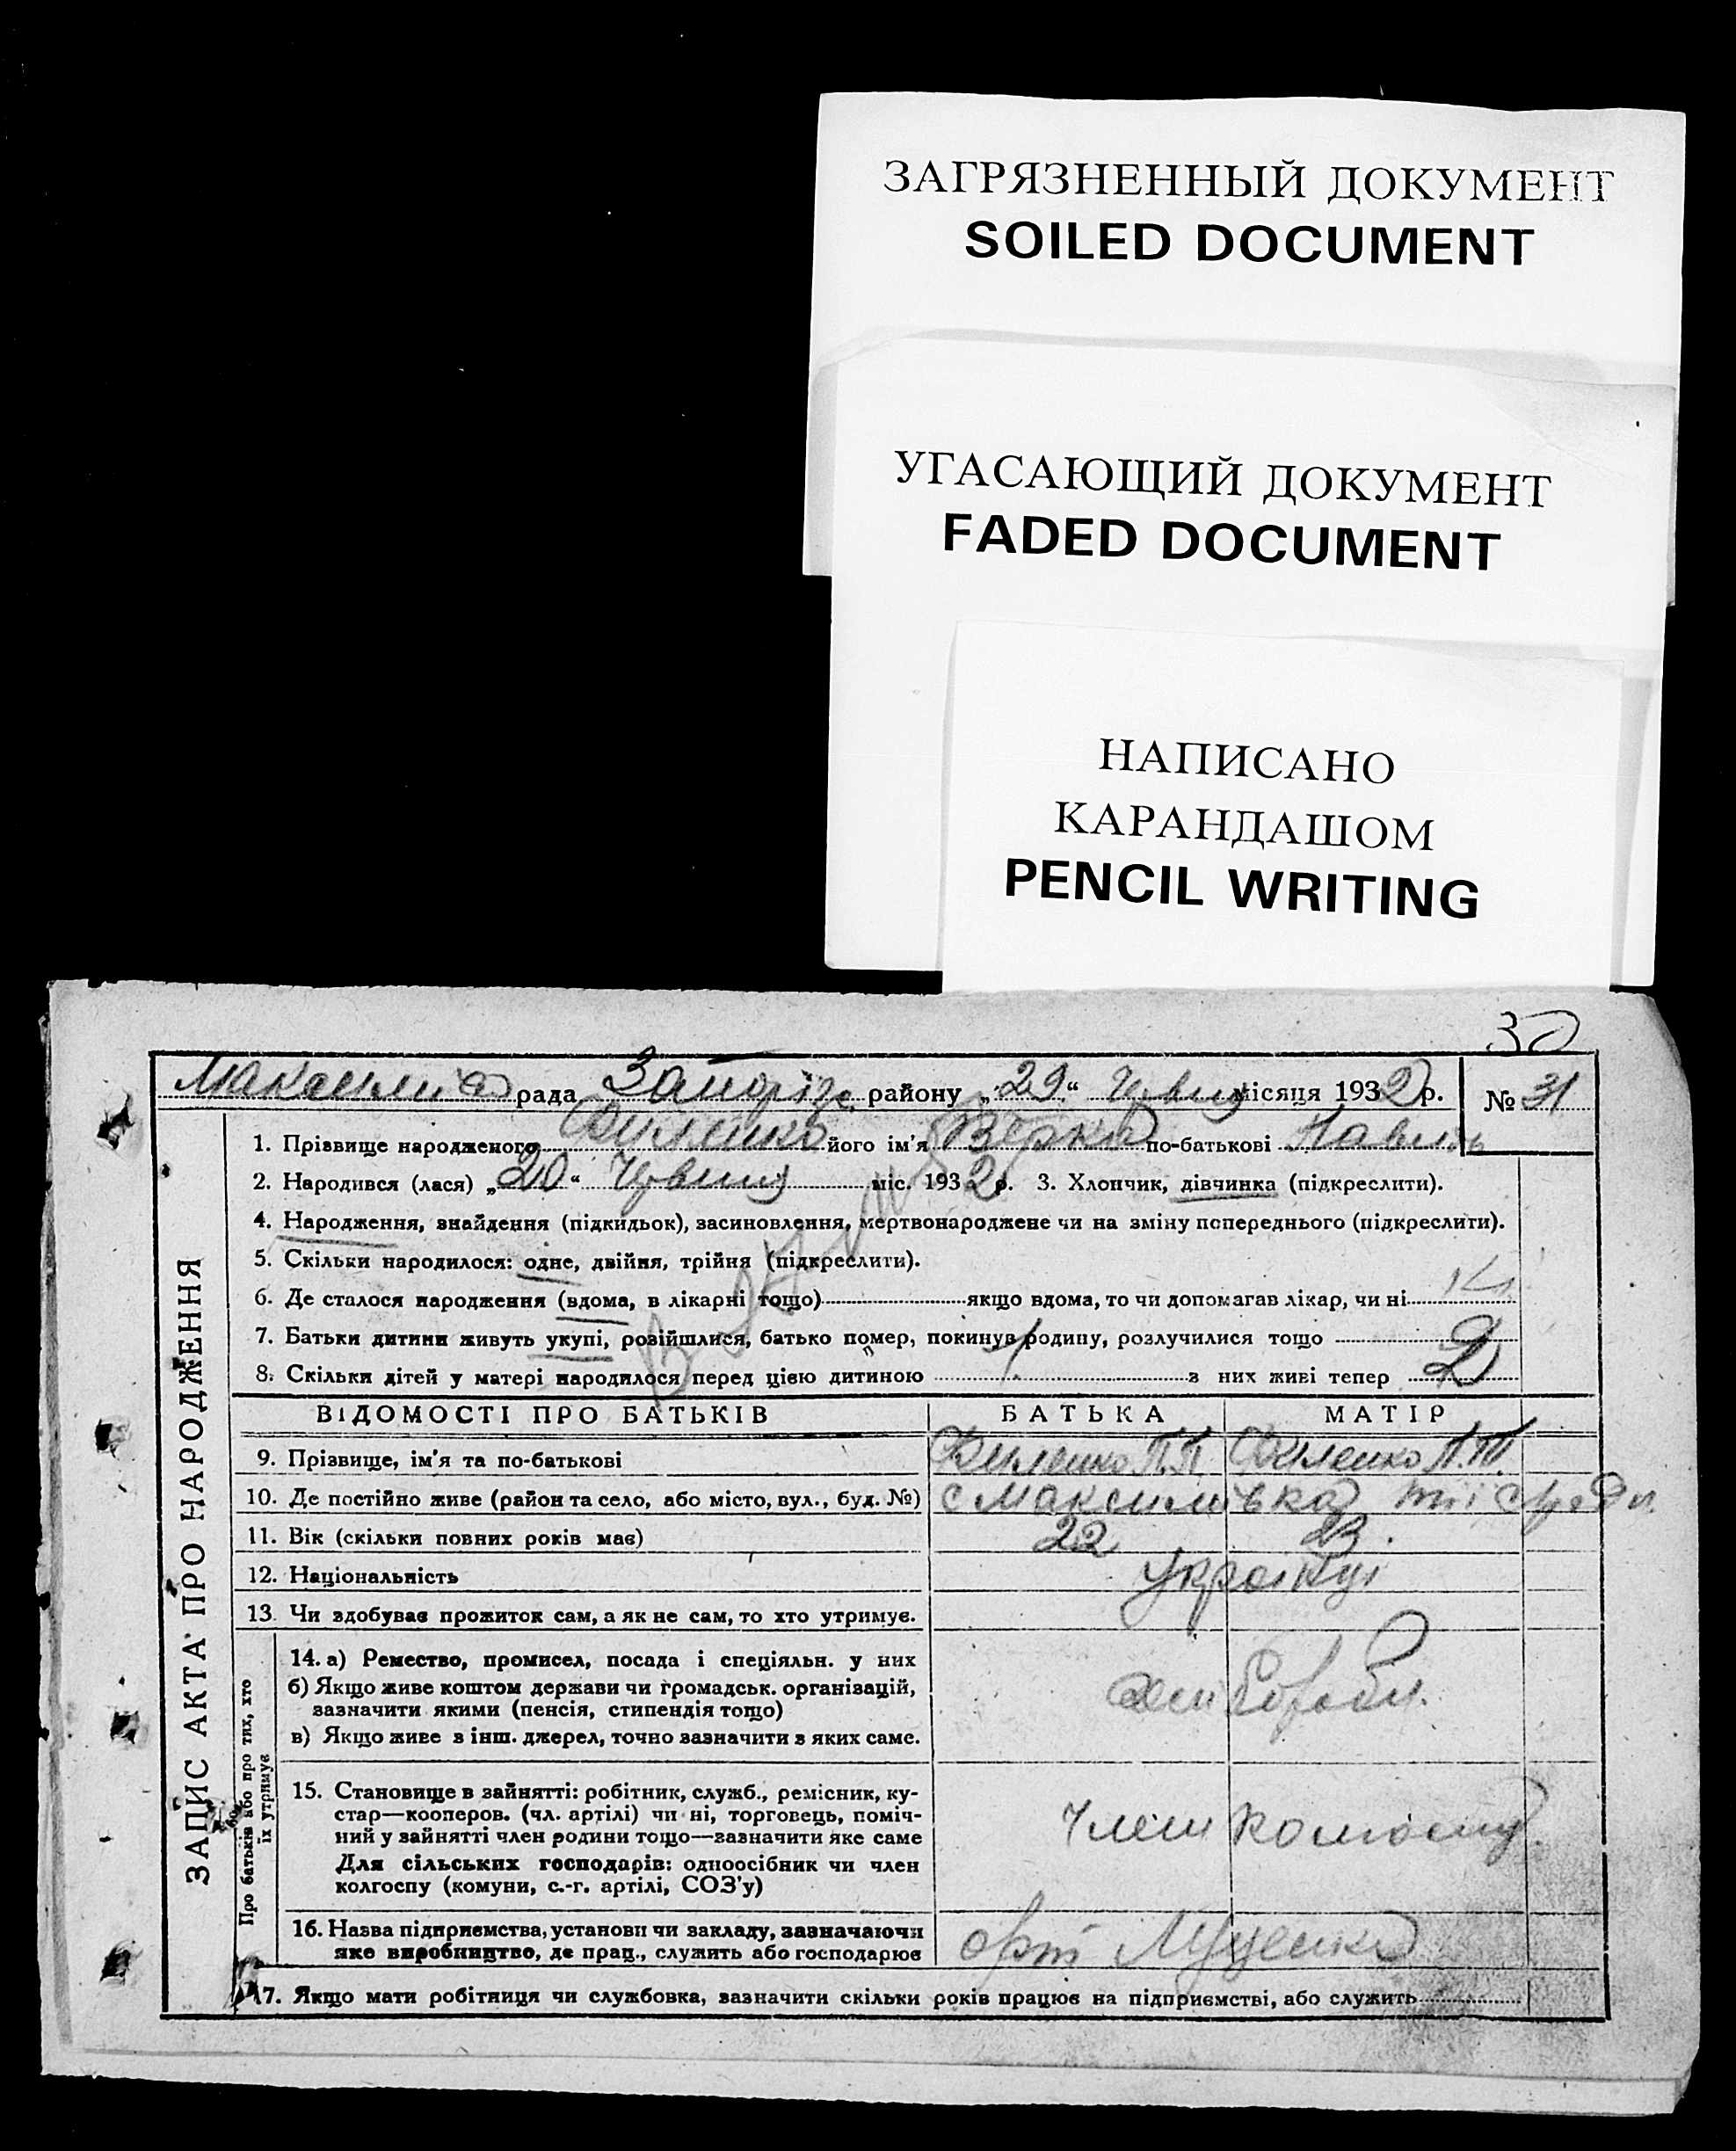 ЗАГРЯЗНЕННЫЙ ДОКУМЕНТ
SOILED DOCUMENT
УГАСАЮЩИЙ ДОКУМЕНТ
FADED DOCUMENT
НАПИСАНО
КАРАНДАШОМ
PENCIL WRITING
30
рада Запоріж. району „29“ Червня місяця 1932 р. № 31
1. Прізвище народженого його ім'я по-батькові Павлов
2. Народився (лася) „20“ Червня міс. 1932 р. 3. Хлопчик, дівчинка (підкреслити).
4. Народження, знайдення (підкидьок), засиновлення, мертвонароджене чи на зміну попереднього (підкреслити).
5. Скільки народилося: одне, двійня, трійня (підкреслити).
6. Де сталося народження (вдома, в лікарні тощо) якщо вдома, то чи допомагав лікар, чи ні
7. Батьки дитини живуть укупі, розійшлися, батько помер, покинув родину, розлучилися тощо
8. Скільки дітей у матері народилося перед цією дитиною 1 з них живі тепер 2
ВІДОМОСТІ ПРО БАТЬКІВ БАТЬКА МАТІР
9. Прізвище, ім'я та по-батькові П.П. П.Т.
10. Де постійно живе (район та село, або місто, вул., буд. №) с Максимівка
11. Вік (скільки повних років має) 22 23
12. Національність Українці
13. Чи здобував прожиток сам, а як не сам, то хто утримує.
14. а) Ремество, промисел, посада і спеціяльн. у них
б) Якщо живе коштом держави чи громадськ. організацій,
зазначити якими (пенсія, стипендія тощо)
в) Якщо живе з інш. джерел, точно зазначити з яких саме.
15. Становище в зайнятті: робітник, служб., ремісник, ку-
стар—кооперов. (чл. артілі) чи ні, торговець, поміч-
ний у зайнятті член родини тощо—зазначити яке саме
Для сільських господарів: одноосібник чи член
колгоспу (комуни, с.-г. артілі, СОЗ'у)
Член колгоспу
16. Назва підприємства, установи чи закладу, зазначаючи
яке виробництво, де прац., служить або господарює
арт
17. Якщо мати робітниця чи службовка, зазначити скільки років працює на підприємстві, або служить
ЗАПИС АКТА ПРО НАРОДЖЕННЯ
Про батьків або про тих, хто
їх утримує